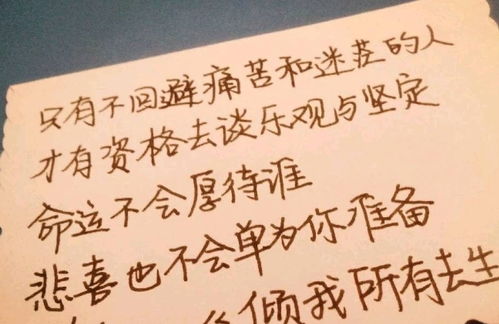 只有不回避痛苦和迷茫的人
才有资格去谈乐观与坚定
命运不会厚待谁
悲喜也不会单为你准备
倾我所有去生